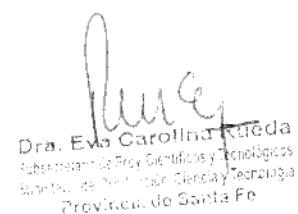 Dra. Eva Carolina Rueda
Subsecretaria de Proy. Científicos y Tecnológicos
de Ciencia y Tecnología
Provincia de Santa Fe